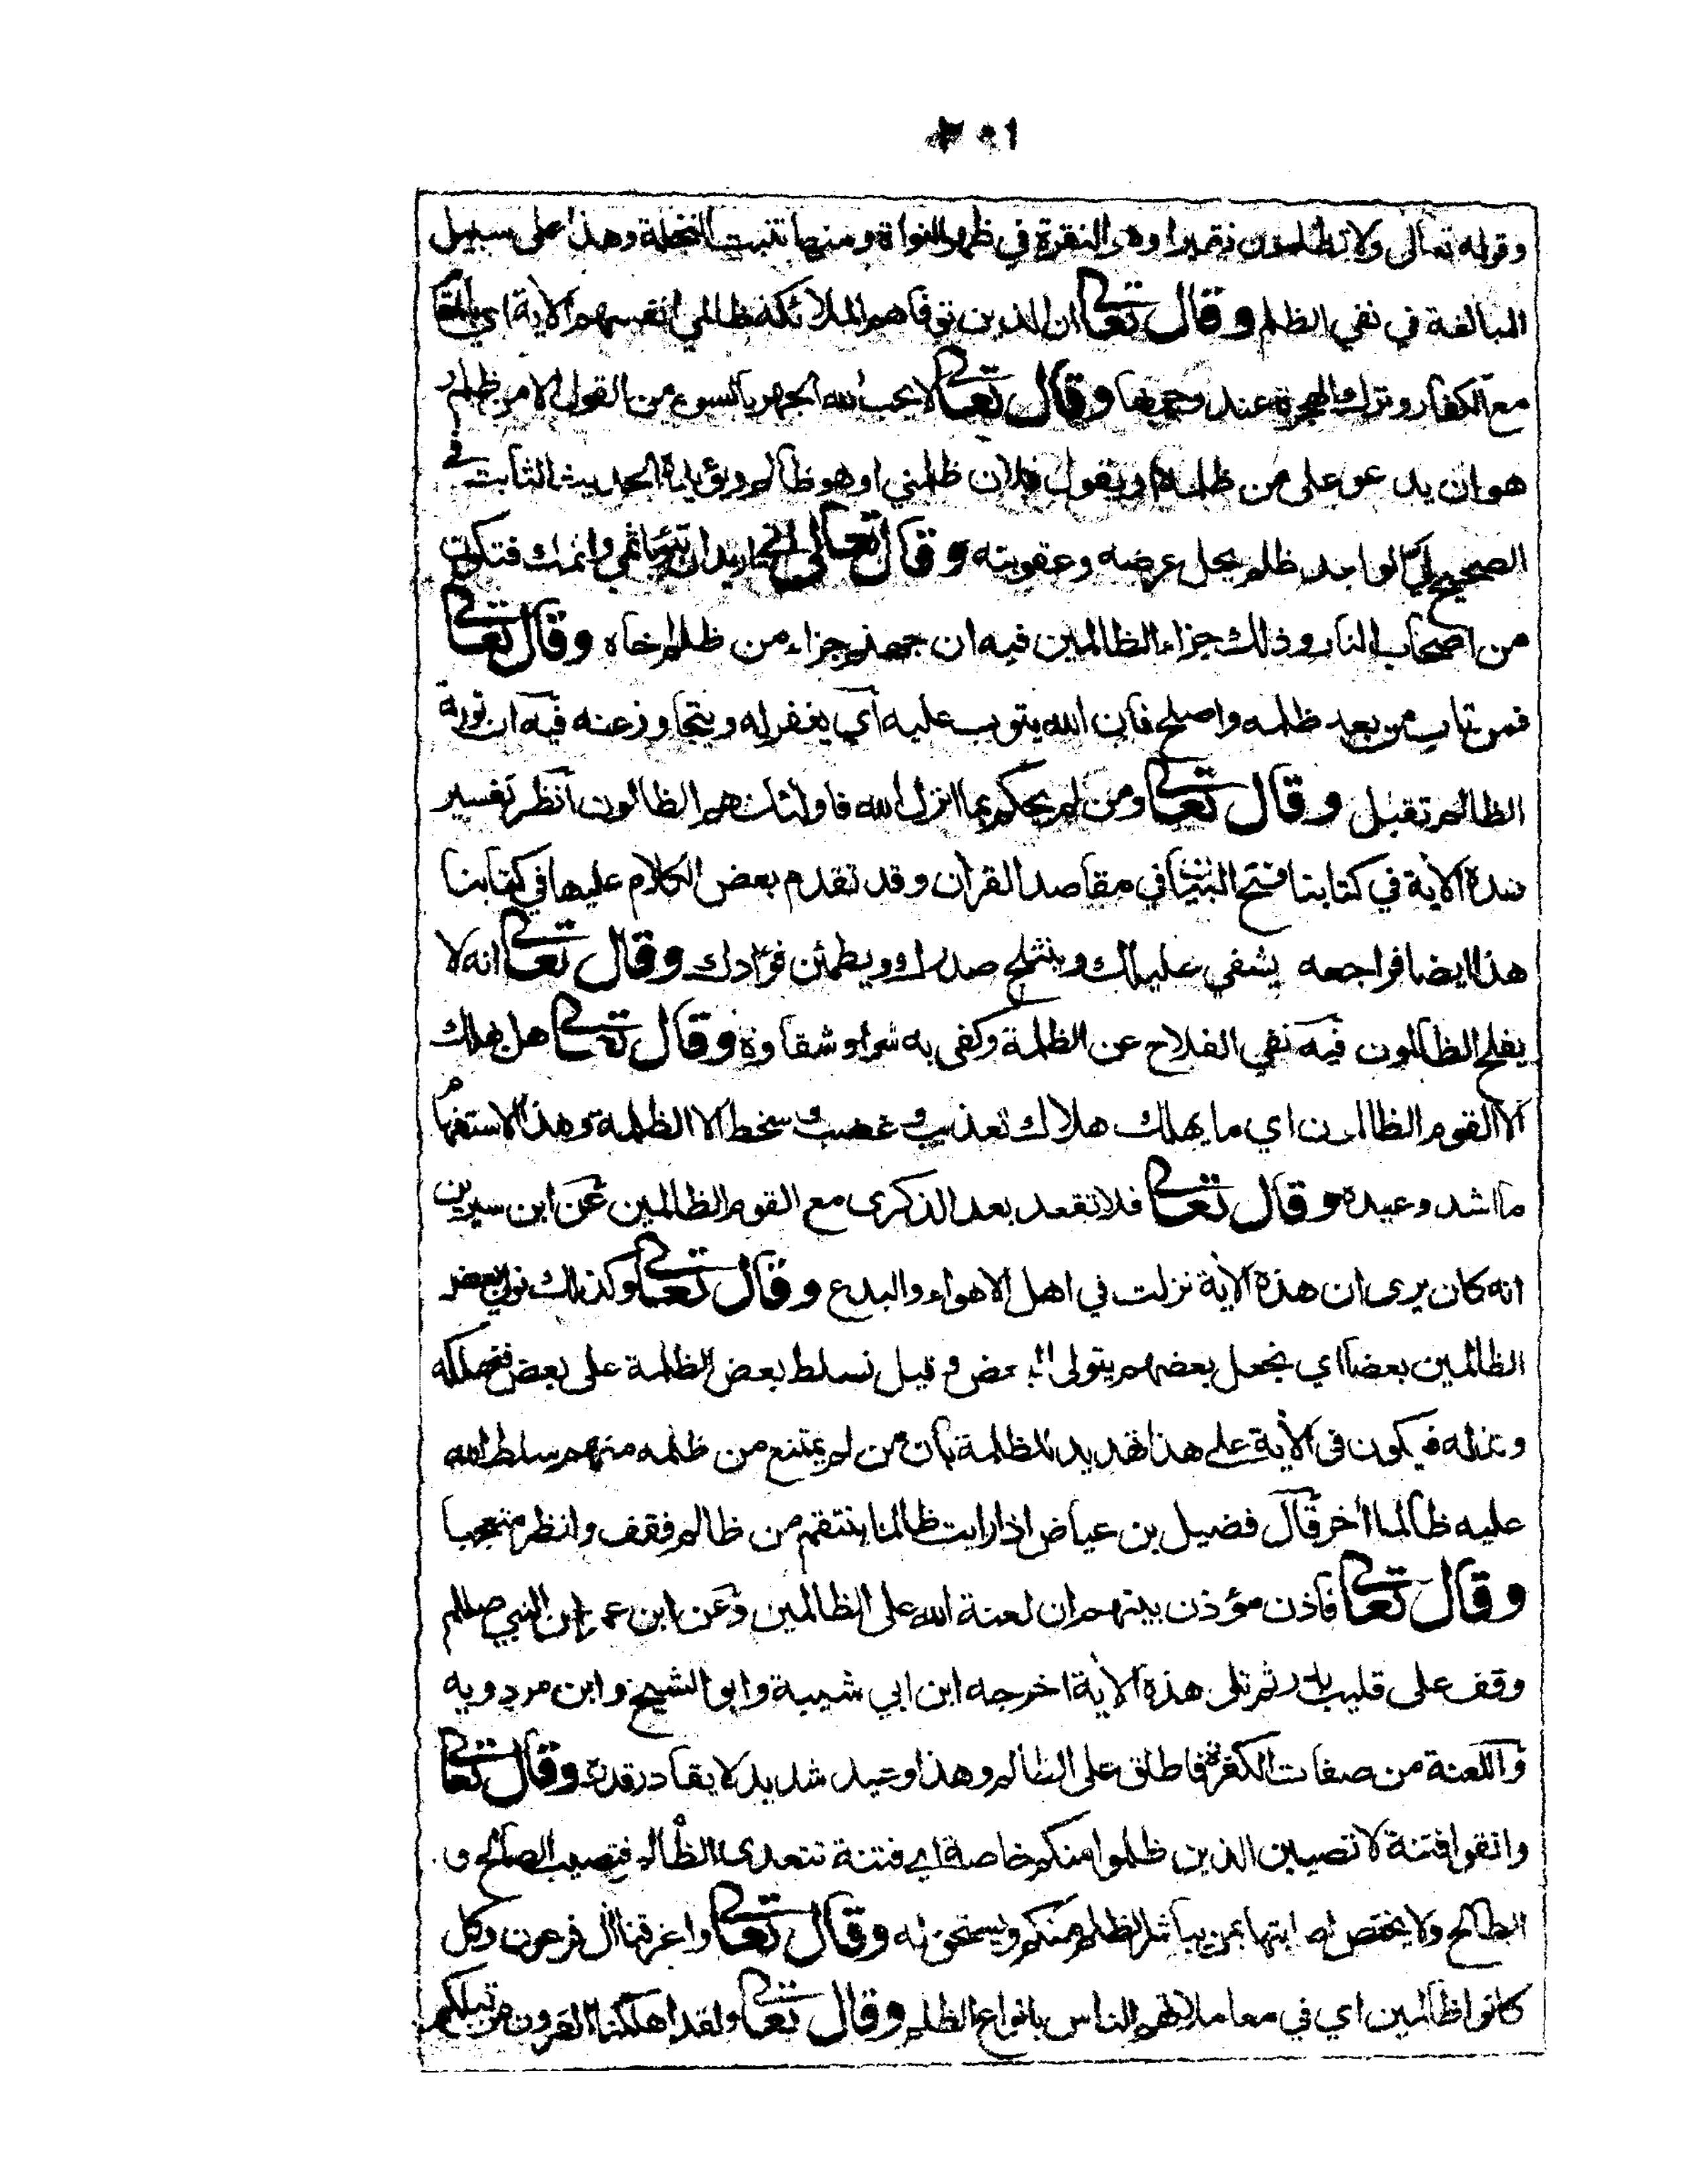 وقوله تعالى ولا تظلمون نقيرا وهو النقرة في ظهر النواة ومنها تنبت النخلة وهذا على سبيل
المبالغة في نفي الظلم وقال تعا ان الذين توفاهم الملائكة ظالمي انفسهم الآية اي
مع الكفار وترك الهجرة عند وقال تعا لا يحب الله الجهر بالسوء من القول الا من ظلم
هو ان يدعو على من ظلمه او يقول فلان ظلمني او هو ظالم ويؤيده الحديث الثابت في
الصحيح ليّ الواجد ظلم يحل عرضه وعقوبته وقال تعالى اني اريد ان تبوء باثمي واثمك فتكون
من اصحاب النار وذلك جزاء الظالمين فيه ان جهنم جزاء من ظلم اخاه وقال تعا
فمن تاب من بعد ظلمه واصلح فان الله يتوب عليه اي يغفر له ويتجاوز عنه فيه ان توبة
الظالم تقبل وقال تعا ومن لم يحكم بما انزل الله فاولئك هم الظالمون انظر تفسير
هذه الآية في كتابنا فتح البيان في مقاصد القرآن وقد تقدم بعض الكلام عليها في كتابنا
هذا ايضا فراجعه يشفي عليلك ويثلج صدرك ويطمئن فؤادك وقال تعا انه لا
يفلح الظالمون فيه نفي الفلاح عن الظلمة وكفى به شرا وشقاوة وقال تعا هل يهلك
الا القوم الظالمون اي ما يهلك هلاك تعذيب وغضب وسخط الا الظلمة وهذا الاستفهام
ما اشد وعيده وقال تعا فلا تقعد بعد الذكرى مع القوم الظالمين عن ابن سيرين
انه كان يرى ان هذه الآية نزلت في اهل الاهواء والبدع وقال تعا وكذلك نولي بعض
الظالمين بعضا اي نجعل بعضهم يتولى البعض وقيل نسلط بعض الظلمة على بعض فتهلكه
وتذله فيكون في الآية على هذا تهديد للظلمة بان من لم يمتنع من ظلمه منهم سلط الله
عليه ظالما آخر قال فضيل بن عياض اذا رايت ظالما ينتقم من ظالم فقف وانظر متعجبا
وقال تعا فاذن مؤذن بينهم ان لعنة الله على الظالمين وعن ابن عمر ان النبي صللم
وقف على قليب بدر ثم تلى هذه الآية اخرجه ابن ابي شيبة وابو الشيخ وابن مردويه
واللعنة من صفات الكفرة فاطلق على الظالم وهذا وعيد شديد لا يقادر قدره وقال تعا
واتقوا فتنة لا تصيبن الذين ظلموا منكم خاصة اي فتنة تتعدى الظالم فتصيب الصالح و
الطالح ولا يختص اصابتها بمن يباشر الظلم منكم ويستحق له وقال تعا واغرقنا آل فرعون وكل
كانوا ظالمين اي في معاملاتهم الناس بانواع الظلم وقال تعا ولقد اهلكنا القرون من قبلكم